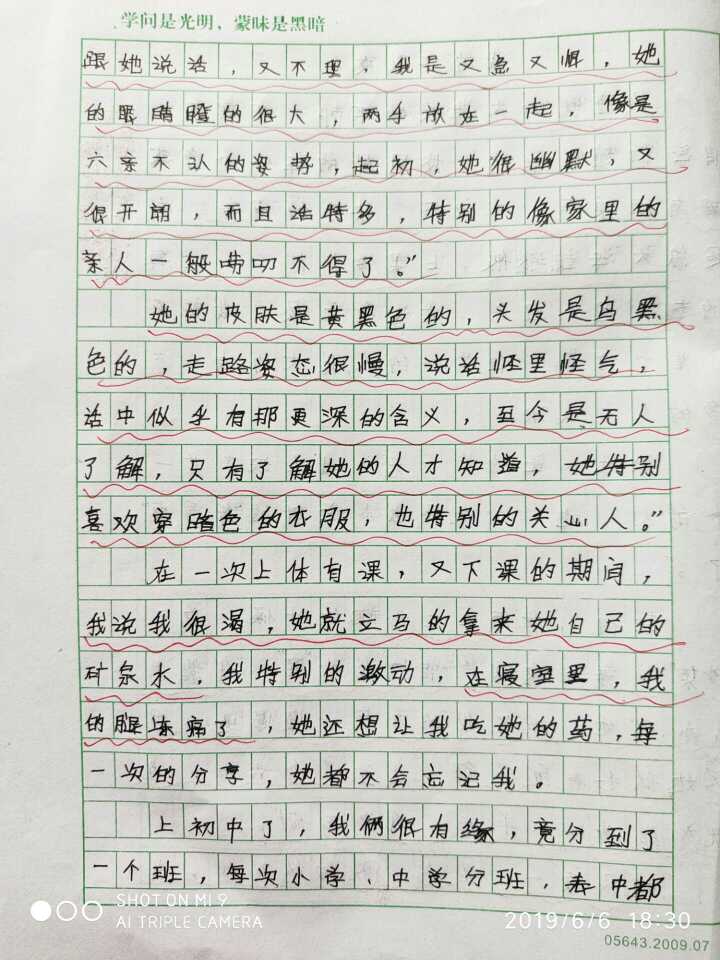 学问是光明，蒙昧是黑暗
跟她说话，又不理，我是又急又恨，她
的眼睛瞪的很大，两手放在一起，像是
六亲不认的姿势，起初，她很幽默，又
很开朗，而且话特多，特别的像家里的
亲人一般唠叨不得了。”
她的皮肤是黄黑色的，头发是乌黑
色的，走路姿态很慢，说话怪里怪气，
话中似乎有那更深的含义，至今是无人
了解，只有了解她的人才知道，她特别
喜欢穿暗色的衣服，也特别的关心人。”
在一次上体育课，又下课的期间，
我说我很渴，她就立马的拿来她自己的
矿泉水，我特别的激动，在寝室里，我
的腿冻痛了，她还想让我吃她的药，每
一次的分享，她都不会忘记我。
上初中了，我俩很有缘，竟分到了
一个班，每次小学、中学分班，中都
SHOT ON MI 9
AI TRIPLE CAMERA
2019/6/6 18:30
05643.2009.07